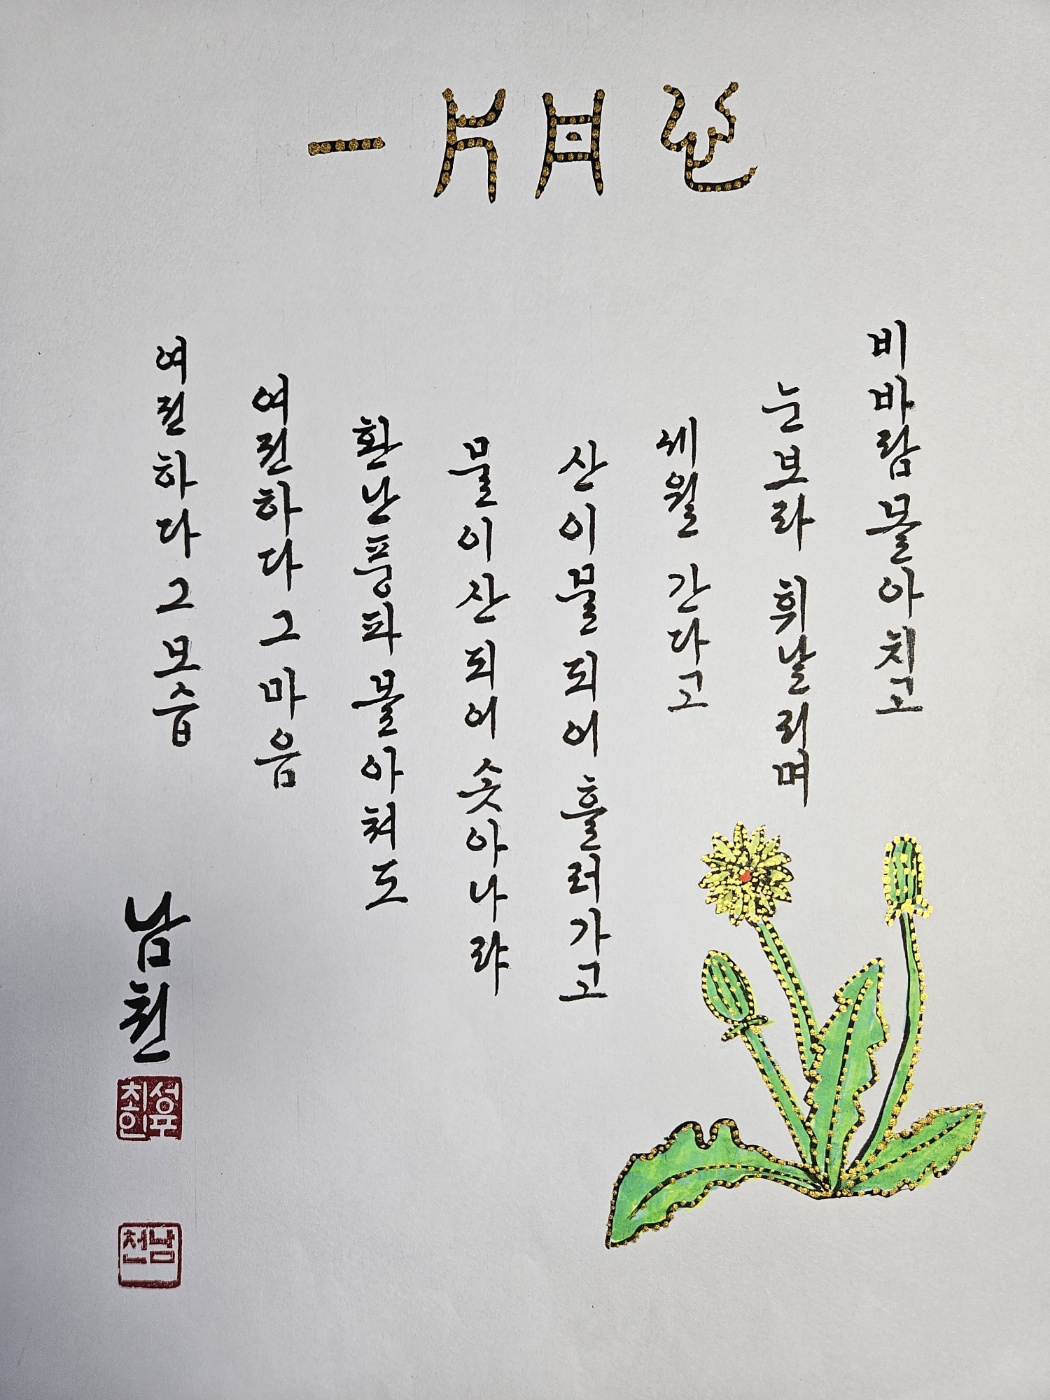 一片丹心
비바람몰아치고
눈보라 휘날리며
세월 간다고
산이물되어 흘러가고
물이산되어 솟아나랴
환난풍파 몰아쳐도
여전하다 그 마음
여전하다 그 모습
남천
남천